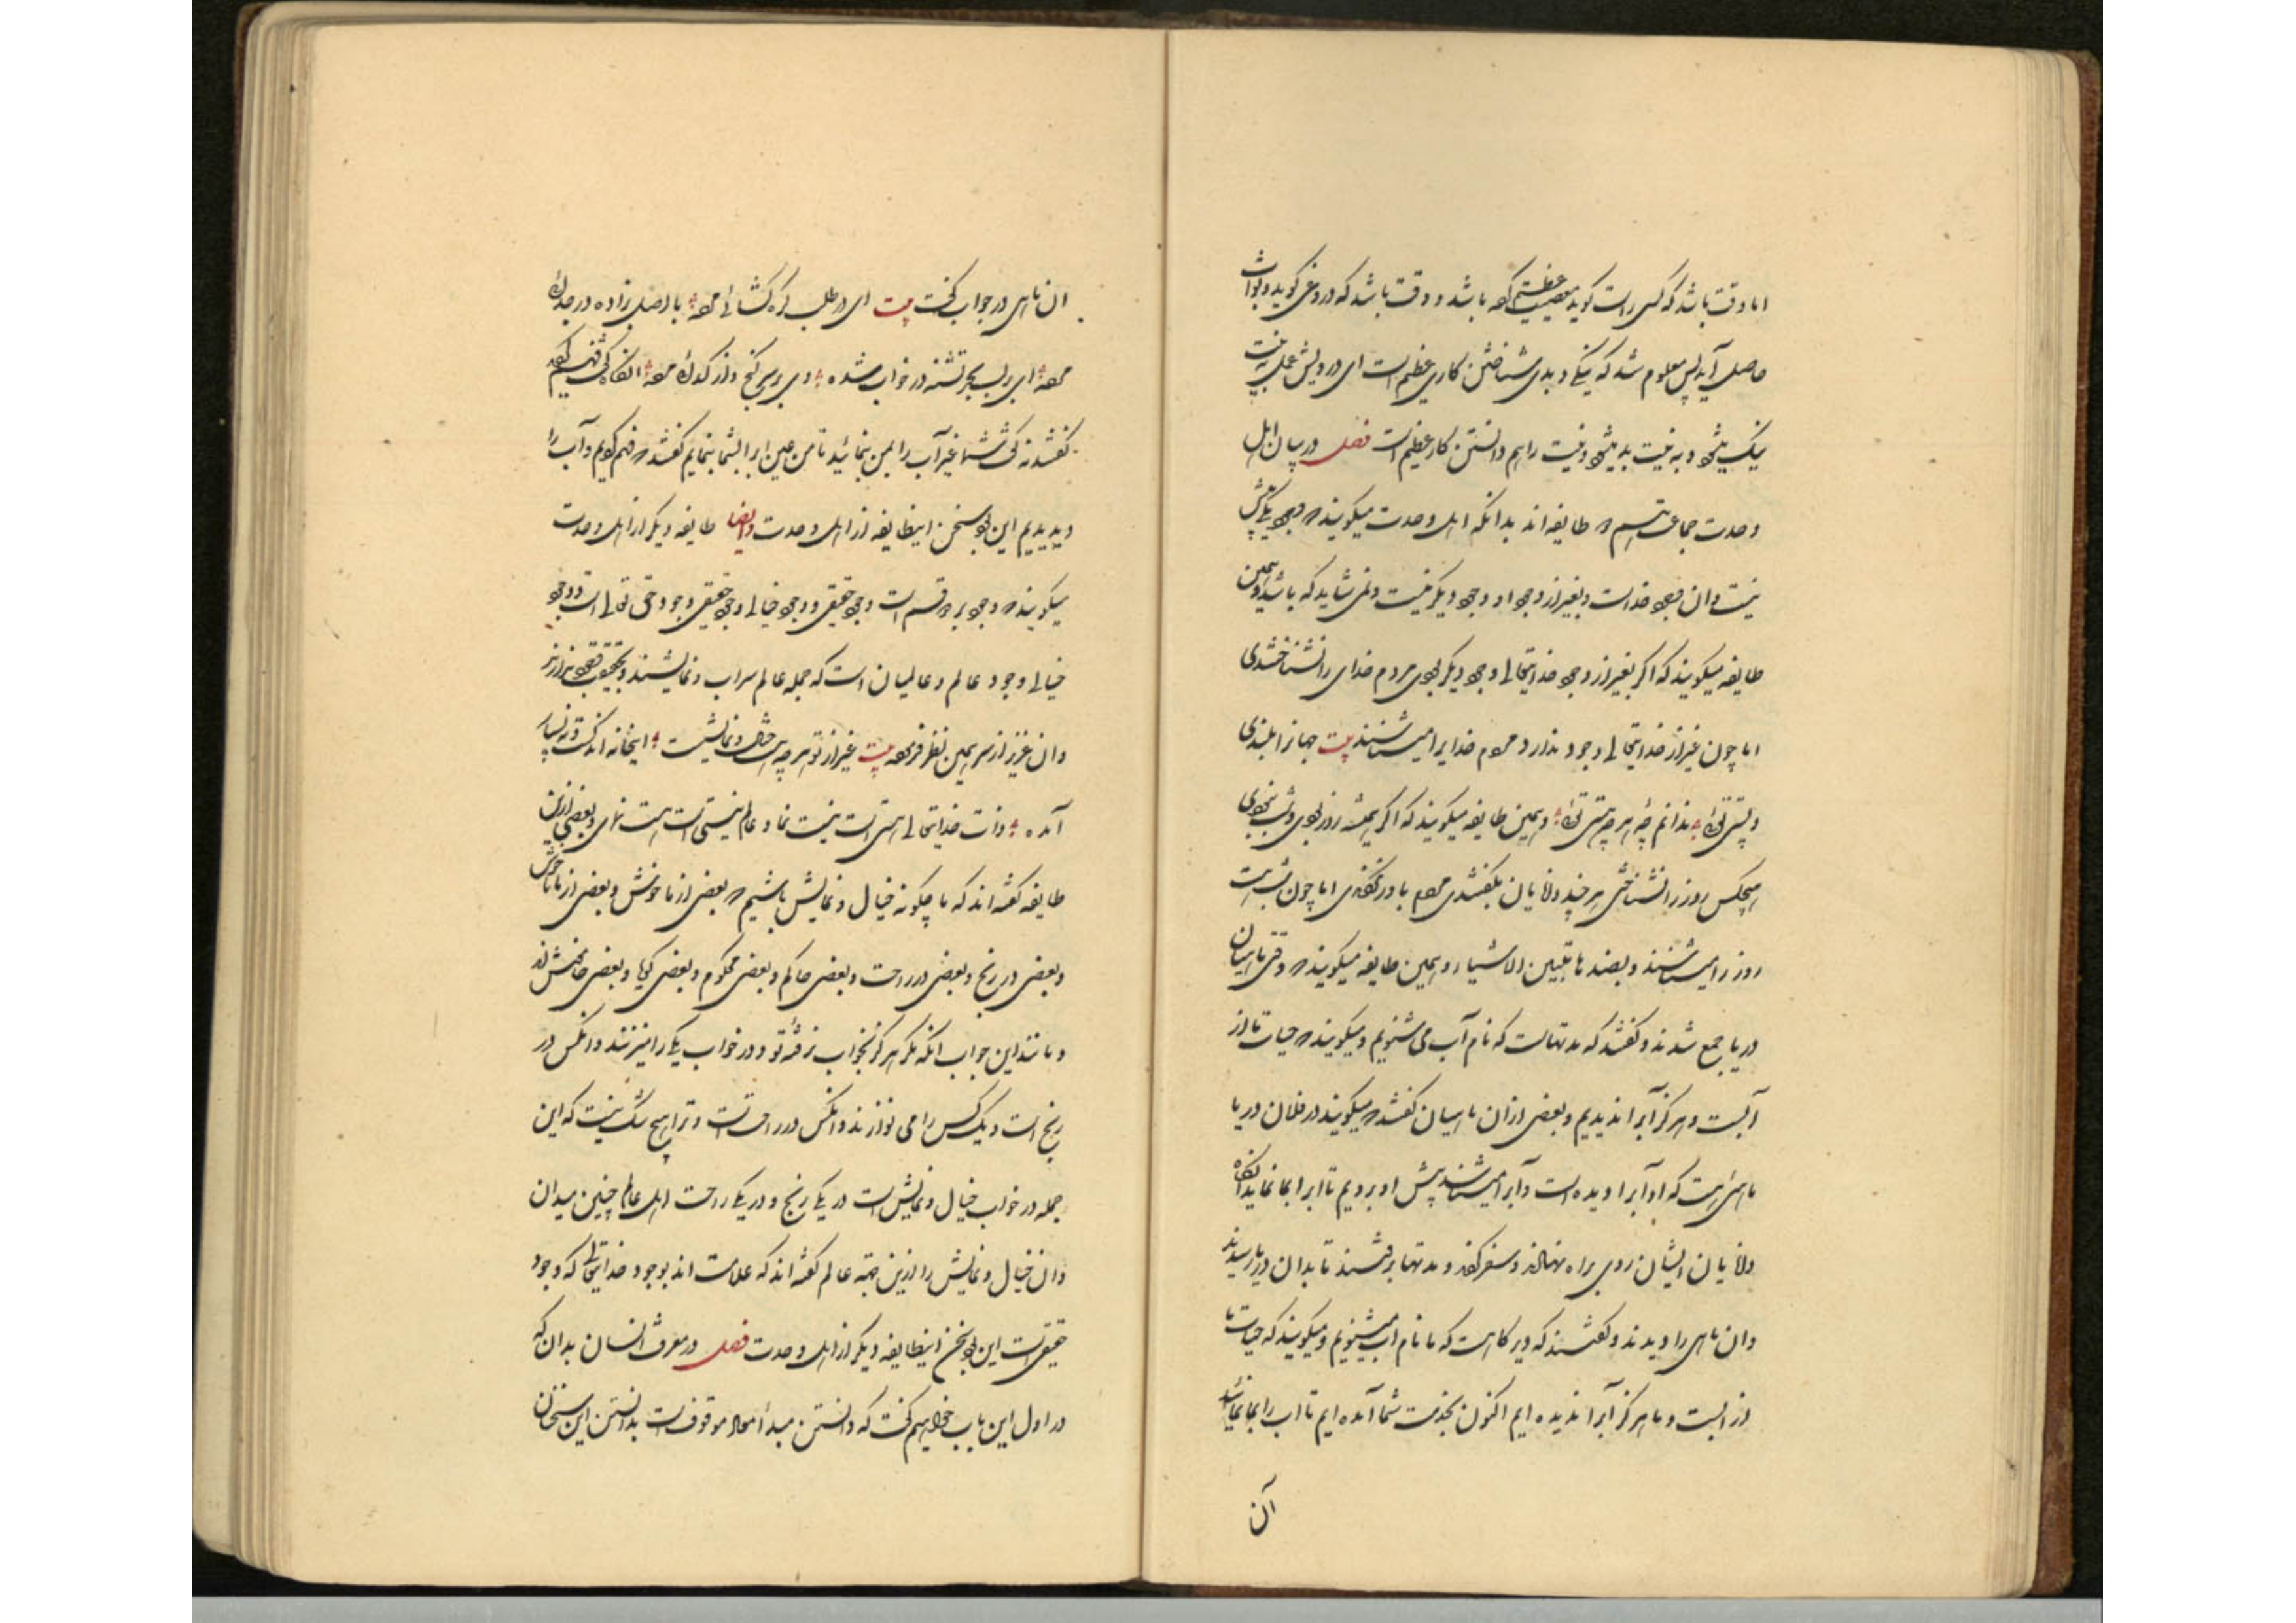 اما وقت باشد که کسی راست گوید معصیت عظیم کرده باشد و وقت باشد که دروغی گوید و ثواب
حاصل آید پس معلوم شد که نیکی و بدی شناختن کاری عظیم است ای درویش عمل به نیت
نیک میشود و به نیت بد میشود و نیت را هم دانستن کار عظیم است فصل در بیان اهل
وحدت جماعت هم دو طایفه اند بدانکه اهل وحدت میگویند که وجود یکی بیش
نیست و ان وجود خداست و بغیر از وجود او وجود دیگر نیست و نمی شاید که باشد و همین
طایفه میگویند که اگر بغیر از وجود خدایتعالی وجود دیگر بودی مردم خدای را بشناختندی
اما چون غیر از خدایتعالی وجود ندارد مردم خدایرا نمیشناسند بیت جهانرا بلندی
و پستی توئی ندانم چه هر چه هستی توئی و همین طایفه میگویند که اگر همیشه روز بودی و شب نبودی
هیچکس روز را نشناختی هر چند دانایان بگفتندی مردم باور نکردندی اما چون شب هست
روز را میشناسند و بضدها تتبین الاشیاء و همین طایفه میگویند که وقتی ماهیان
دریا جمع شدند و گفتند که مدتهاست که نام آب می شنویم و میگویند که حیات ما از
آبست و هرگز آبرا ندیدیم و بعضی ازان ماهیان گفتند که میگویند در فلان دریا
ماهی است که او آبرا دیده است و آبرا میشناسد پیش او برویم تا آبرا بما نماید انگاه
دانایان ایشان روی براه نهادند و سفر کردند و مدتها برفتند تا بدان دریا رسیدند
وان ماهی را دیدند و گفتند که دیرگاهست که ما نام آب میشنویم و میگویند که حیات ما
از آبست و ما هرگز آبرا ندیده ایم اکنون بخدمت شما آمده ایم تا آب را بما نمائید
آن
ان ماهی در جواب گفت بیت ای در طلب گره گشائی مرده با وصل بزاده در جدائی
مرده ای بر لب بحر تشنه در خواب شده وی بر سر گنج و از گدائی مرده انگاه گفت فهم کردید
گفتند نه گفت شما غیر آب را بمن بنمائید تا من عین آبرا بشما بنمایم گفتند که فهم کردیم و آب را
دیدیم این بود سخن اینطایفه از اهل وحدت و ایضا طایفه دیگر از اهل وحدت
میگویند که وجود بر دو قسم است وجود حقیقی و وجود خیالی وجود حقیقی وجود حق تعالی است و وجود
خیالی وجود عالم و عالمیان است که جمله عالم سراب و نمایشند و بحقیقت وجود ندارند
وان عزیز از سر همین نظر فرموده بیت غیر از تو هر چه هست خیال و نمایشست اینجا نه اندکست و نه بسیار
آمده و ذات خدایتعالی هستی است نیست نما و عالم نیستی است هست نمای و بعضی ازین
طایفه گفته اند که ما چگونه خیال و نمایش باشیم که بعضی از ما خوش و بعضی از ما ناخوش
و بعضی در رنج و بعضی در راحت و بعضی حاکم و بعضی محکوم و بعضی گویا و بعضی خاموشند
و مانند این جواب انکه مگر هرگز بخواب نرفته تو و در خواب یکی را میزنند و انکس در
رنج است و یک کس را می نوازند و انکس در راحتست و ترا هیچ شک نیست که این
جمله در خواب خیال و نمایش است در یکی رنج و در یکی راحت اهل عالم چنین میدان
وان خیال و نمایش را ازین جهة عالم گفته اند که علامت اند بوجود خدایتعالی که وجود
حقیقی است این بود سخن اینطایفه دیگر از اهل وحدت فصل در معرفت انسان بدان که
در اول این باب خواهیم گفت که دانستن مبدأ و معاد موقوفست بدانستن این سخنان